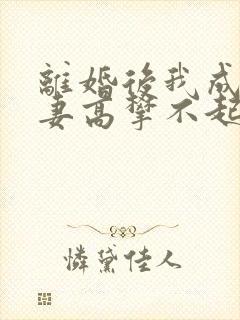 離婚後我成
妻高攀不起
憐黛佳人